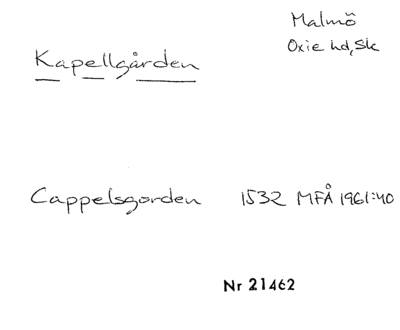 Malmö
Oxie hd, Sk
Kapellgården
Cappelsgorden 1532 MFÅ 1961:40
Nr 21462